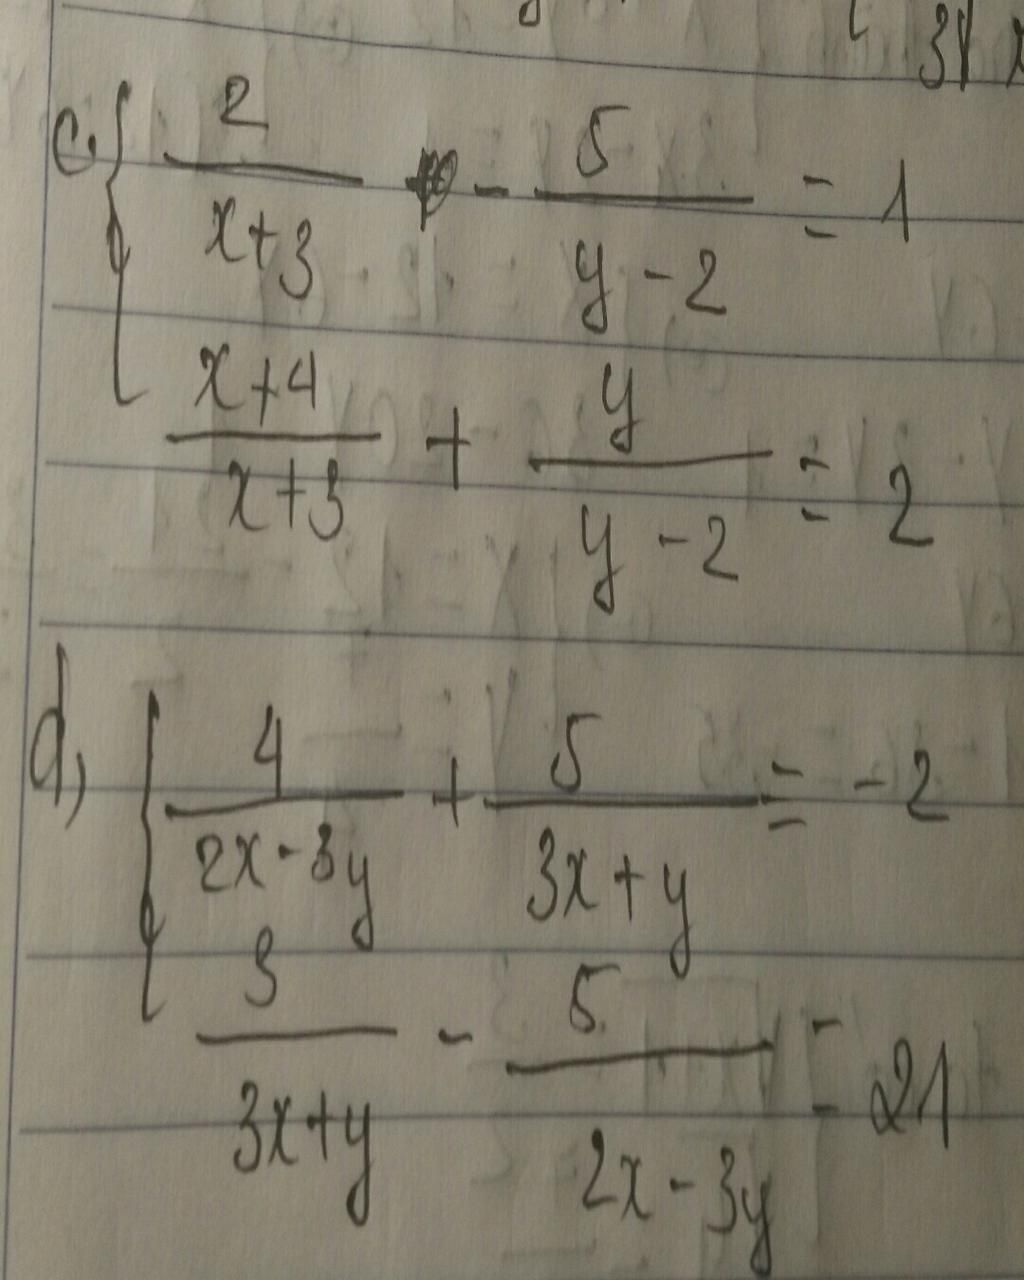 c. { 2/(x+3) - 5/(y-2) = 1
(x+4)/(x+3) + y/(y-2) = 2
d, { 4/(2x-3y) + 5/(3x+y) = -2
3/(3x+y) - 5/(2x-3y) = 21